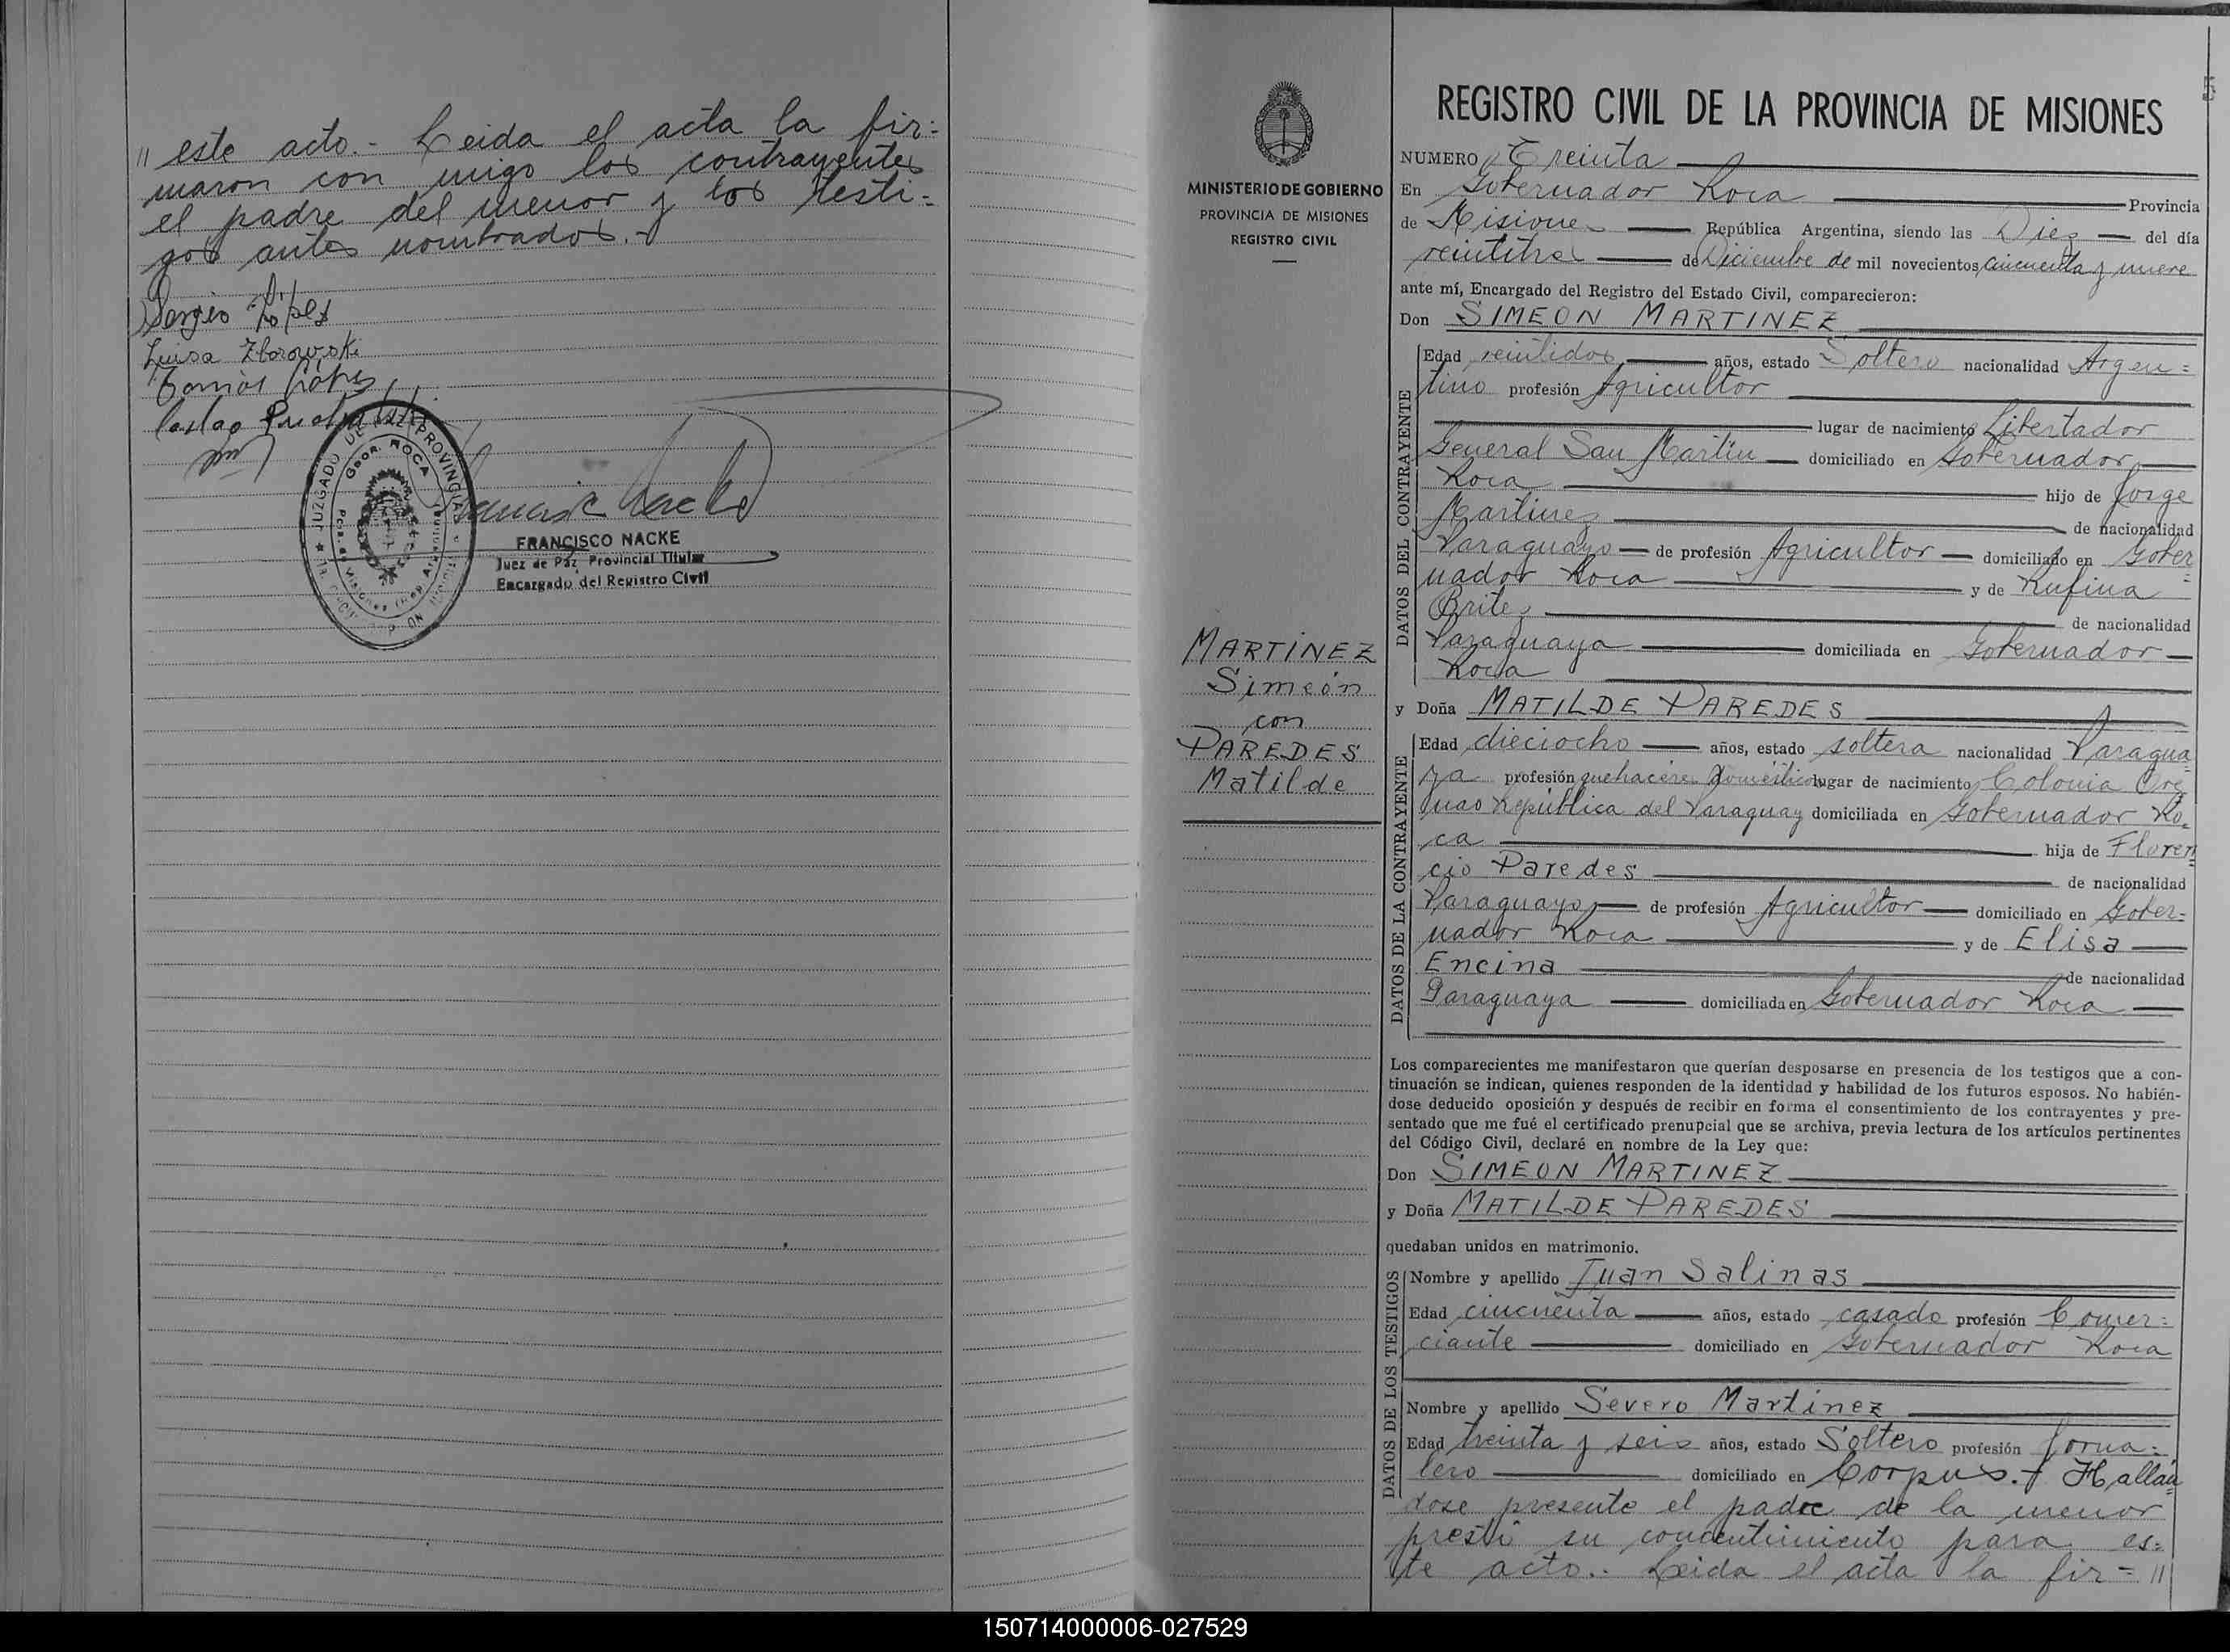 " este acto.- Leida el acta la fir=
maron con migo los contrayentes
el padre del menor y los testi=
gos antes nombrados.-
Sergio López
Luisa Zborowski
FRANCISCO NACKE
Juez de Paz Provincial Titular
Encargado del Registro Civil
JUZGADO DE PAZ PROVINCIAL
GDOR. ROCA
MINISTERIO DE GOBIERNO
PROVINCIA DE MISIONES
REGISTRO CIVIL
MARTÍNEZ
Simeón
con
PAREDES
Matilde
REGISTRO CIVIL DE LA PROVINCIA DE MISIONES
NUMERO Treinta
En Gobernador Roca Provincia
de Misiones República Argentina, siendo las Diez del día
veintitres de Diciembre de mil novecientos cincuenta y nueve
ante mí, Encargado del Registro del Estado Civil, comparecieron:
Don SIMEON MARTINEZ
DATOS DEL CONTRAYENTE
Edad veintidos años, estado Soltero nacionalidad Argen=
tino profesión Agricultor
lugar de nacimiento Libertador
General San Martín domiciliado en Gobernador
Roca hijo de Jorge
Martinez de nacionalidad
Paraguayo de profesión Agricultor domiciliado en Gober=
nador Roca y de Rufina
Britez de nacionalidad
Paraguaya domiciliada en Gobernador
Roca
y Doña MATILDE PAREDES
DATOS DE LA CONTRAYENTE
Edad dieciocho años, estado soltera nacionalidad Paragua=
ya profesión quehaceres domésticos lugar de nacimiento Colonia
República del Paraguay domiciliada en Gobernador Ro=
ca hija de Floren=
cio Paredes de nacionalidad
Paraguayo de profesión Agricultor domiciliado en Gober=
nador Roca y de Elisa
Encina de nacionalidad
Paraguaya domiciliada en Gobernador Roca
Los comparecientes me manifestaron que querían desposarse en presencia de los testigos que a con-
tinuación se indican, quienes responden de la identidad y habilidad de los futuros esposos. No habién-
dose deducido oposición y después de recibir en forma el consentimiento de los contrayentes y pre-
sentado que me fué el certificado prenupcial que se archiva, previa lectura de los artículos pertinentes
del Código Civil, declaré en nombre de la Ley que:
Don SIMEON MARTINEZ
y Doña MATILDE PAREDES
quedaban unidos en matrimonio.
DATOS DE LOS TESTIGOS
Nombre y apellido Juan Salinas
Edad cincuenta años, estado casado profesión Comer=
ciante domiciliado en Gobernador Roca
Nombre y apellido Severo Martínez
Edad treinta y seis años, estado Soltero profesión Jorna=
lero domiciliado en Corpus.- Hallán=
dose presente el padre de la menor
prestó su concentimiento para es=
te acto.- Leida el acta la fir= "
150714000006-027529